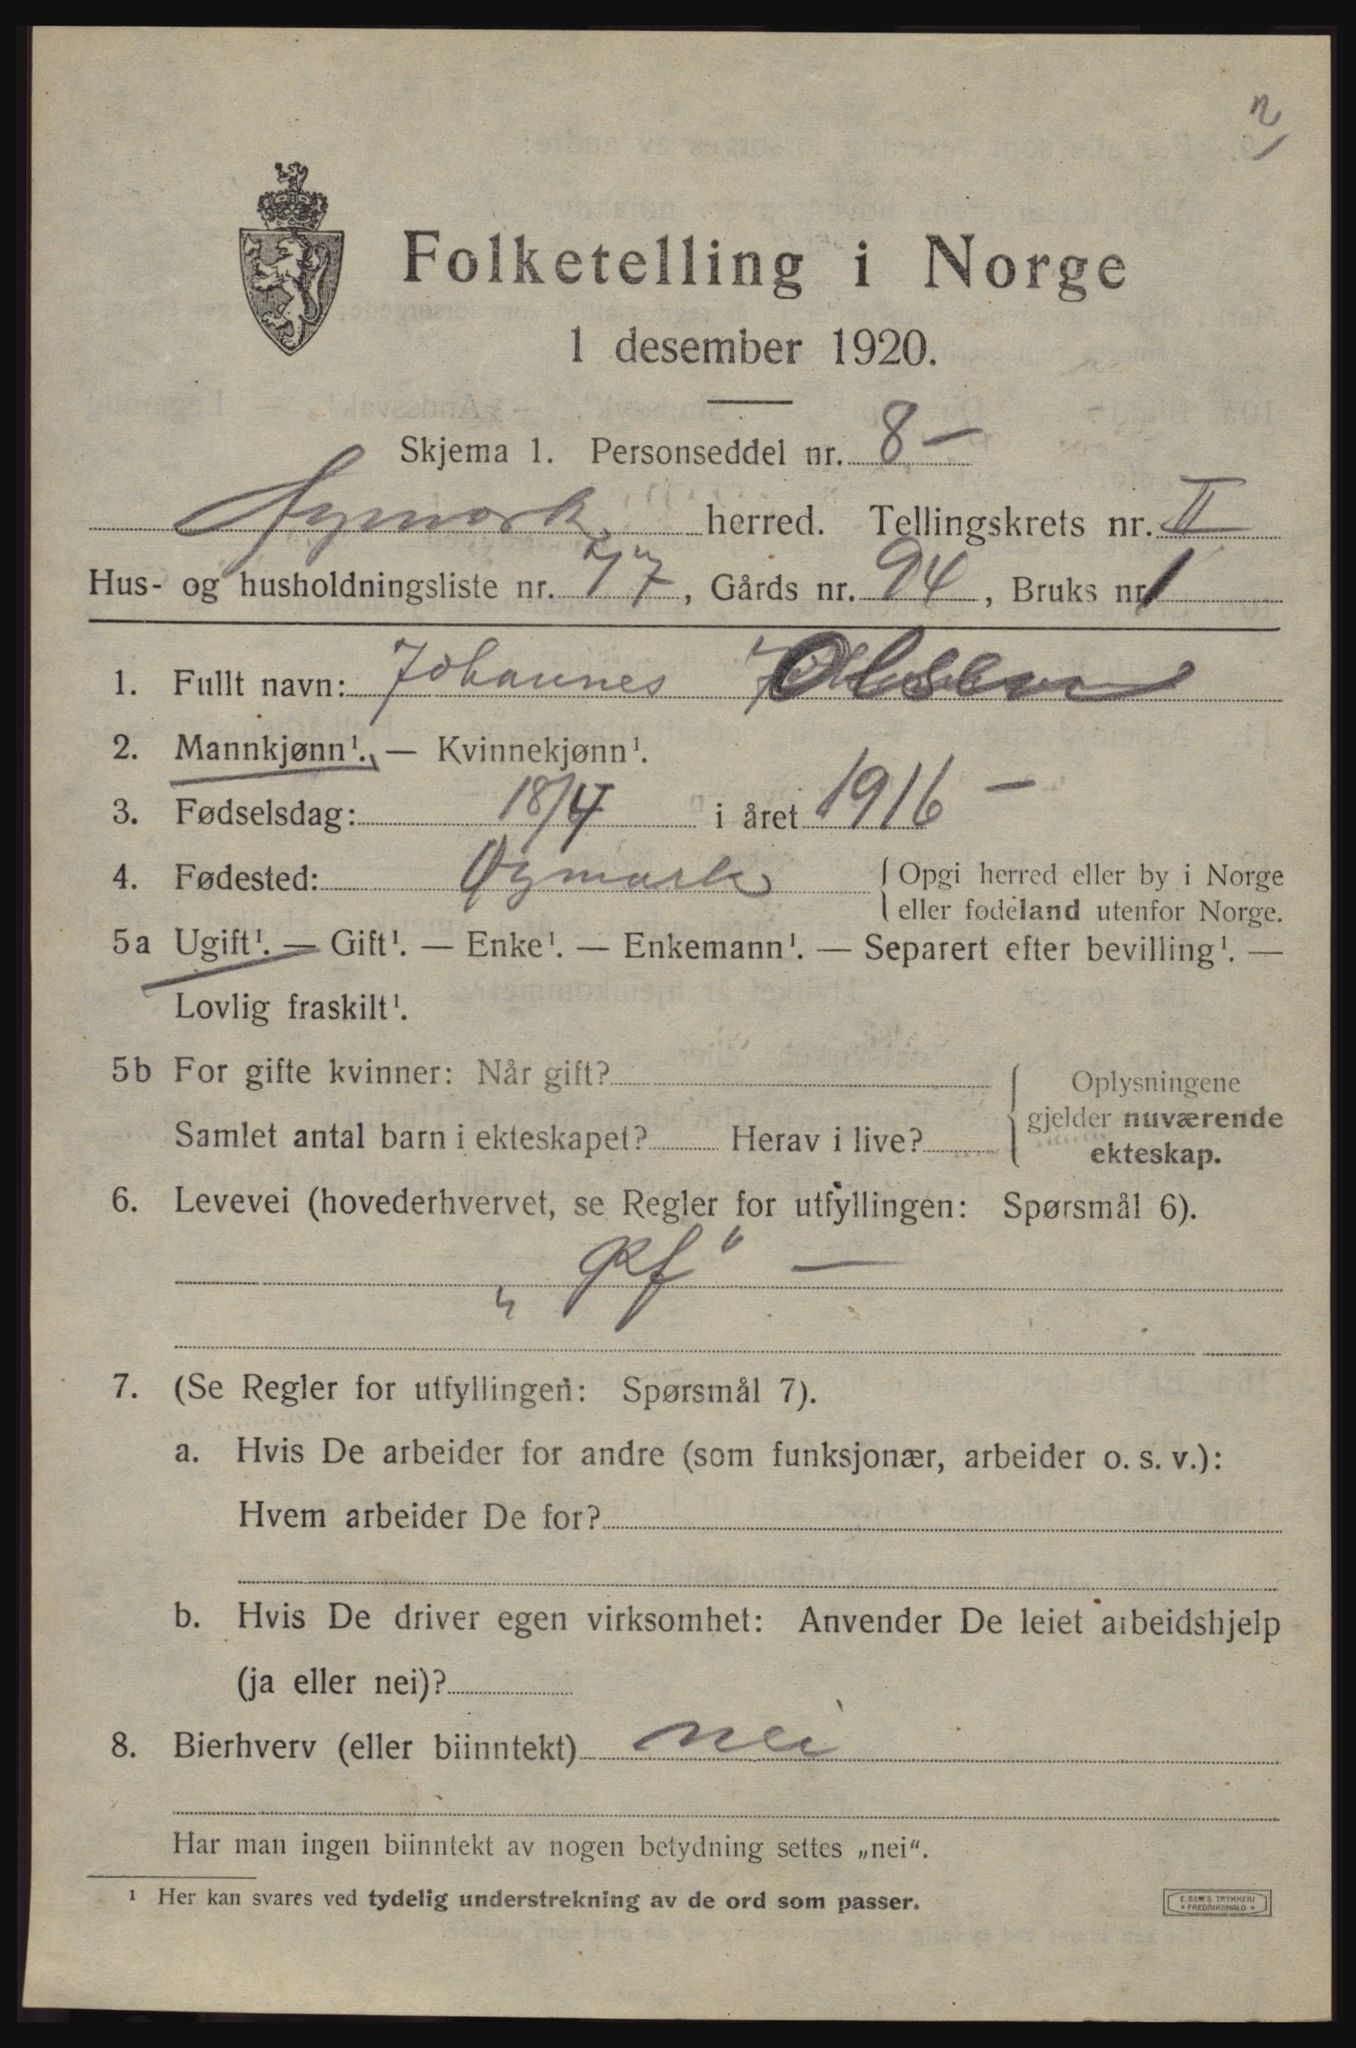 2
Folketelling i Norge
1 desember 1920.
Skjema 1. Personseddel nr. 8 —
Øymark herred. Tellingskrets nr. II
Hus- og husholdningsliste nr. 77, Gårds nr. 94, Bruks nr. 1
1. Fullt navn: Johannes Olsen
2. Mannkjønn¹. — Kvinnekjønn¹.
3. Fødselsdag: 18/4 i året 1916 —
4. Fødested: Øymark { Opgi herred eller by i Norge
eller fødeland utenfor Norge.
5a Ugift¹. — Gift¹. — Enke¹. — Enkemann¹. — Separert efter bevilling¹. —
Lovlig fraskilt¹.
5b For gifte kvinner: Når gift? { Oplysningene
gjelder nuværende
Samlet antal barn i ekteskapet? Herav i live?
ekteskap.
6. Levevei (hovederhvervet, se Regler for utfyllingen: Spørsmål 6).
„Pf“ —
7. (Se Regler for utfyllingen: Spørsmål 7).
a. Hvis De arbeider for andre (som funksjonær, arbeider o. s. v.):
Hvem arbeider De for?
b. Hvis De driver egen virksomhet: Anvender De leiet arbeidshjelp
(ja eller nei)?
8. Bierhverv (eller biinntekt) nei
Har man ingen biinntekt av nogen betydning settes „nei“.
¹ Her kan svares ved tydelig understrekning av de ord som passer.
E. SEM'S TRYKKERI
* FREDRIKSHALD *